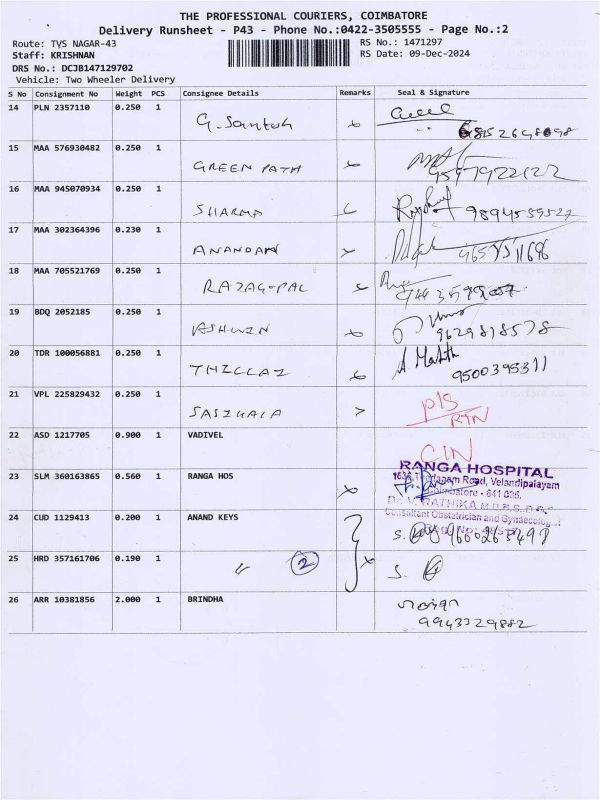 THE PROFESSIONAL COURIERS, COIMBATORE
Delivery Runsheet - P43 - Phone No.:0422-3505555 - Page No.:2
Route: TVS NAGAR-43 RS No.: 1471297
Staff: KRISHNAN RS Date: 09-Dec-2024
DRS No.: DCJB147129702
Vehicle: Two Wheeler Delivery
S No Consignment No Weight PCS Consignee Details Remarks Seal & Signature
14 PLN 2357110 0.250 1 G. Santosh
15 MAA 576930482 0.250 1 GREEN PATH
16 MAA 945070934 0.250 1 SHARMA 9894559527
17 MAA 302364396 0.230 1 ANANDAN
18 MAA 705521769 0.250 1 RAZAG-PAL
19 BDQ 2052185 0.250 1 ASHWIN 9629818578
20 TDR 100056881 0.250 1 THILLAI 9500395311
21 VPL 225829432 0.250 1 SASIKALA P/S
RTN
22 ASD 1217705 0.900 1 VADIVEL CIN
23 SLM 360163865 0.560 1 RANGA HOS RANGA HOSPITAL
Road, Velandipalayam
Coimbatore - 641 025.
Consultant Obstetrician and Gynaecologist
24 CUD 1129413 0.200 1 ANAND KEYS S. 9600263498
25 HRD 357161706 0.190 1 " 2 S.
26 ARR 10381856 2.000 1 BRINDHA
9943329882